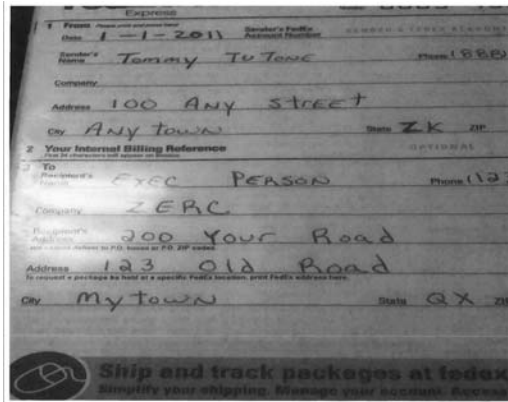 Express
1 From Please print and press hard.
Date 1-1-2011 Sender's FedEx Account Number
Sender's Name Tommy TuTone Phone (888)
Company
Address 100 Any Street
City Any town State ZK ZIP
2 Your Internal Billing Reference OPTIONAL
First 24 characters will appear on invoice.
3 To
Recipient's Name Exec Person Phone (123
Company ZERC
Recipient's Address 200 Your Road
We cannot deliver to P.O. boxes or P.O. ZIP codes.
Address 123 Old Road
To request a package be held at a specific FedEx location, print FedEx address here.
City Mytown State QX ZIP
Ship and track packages at fedex
Simplify your shipping. Manage your account. Access